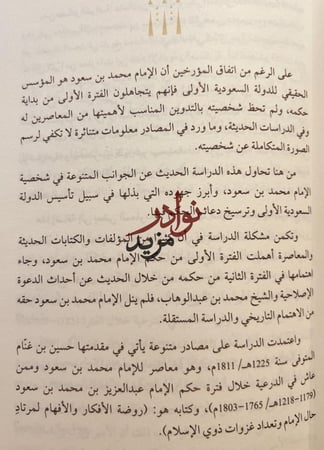 على الرغم من اتفاق المؤرخين أن الإمام محمد بن سعود هو المؤسس
الحقيقي للدولة السعودية الأولى فإنهم يتجاهلون الفترة الأولى من بداية
حكمه، ولم تحظ شخصيته بالتدوين المناسب لأهميتها من المعاصرين له
وفي الدراسات الحديثة، وما ورد في المصادر معلومات متناثرة لا تكفي لرسم
الصورة المتكاملة عن شخصيته.
من هنا تحاول هذه الدراسة الحديث عن الجوانب المتنوعة في شخصية
الإمام محمد بن سعود، وأبرز جهوده التي بذلها في سبيل تأسيس الدولة
السعودية الأولى وترسيخ
نوادر
مزيد
وتكمن مشكلة الدراسة في أن المؤلفات والكتابات الحديثة
والمعاصرة أهملت الفترة الأولى من حكم الإمام محمد بن سعود، وجاء
اهتمامها في الفترة الثانية من حكمه من خلال الحديث عن أحداث الدعوة
الإصلاحية والشيخ محمد بن عبدالوهاب، فلم ينل الإمام محمد بن سعود حقه
من الاهتمام التاريخي والدراسة المستقلة.
واعتمدت الدراسة على مصادر متنوعة يأتي في مقدمتها حسين بن غنّام
المتوفى سنة 1225هـ/ 1811م، وهو معاصر للإمام محمد بن سعود وممن
عاش في الدرعية خلال فترة حكم الإمام عبدالعزيز بن محمد بن سعود
(1179-1218هـ/ 1765-1803م)، وكتابه هو: (روضة الأفكار والأفهام لمرتادِ
حال الإمام وتعداد غزوات ذوي الإسلام).